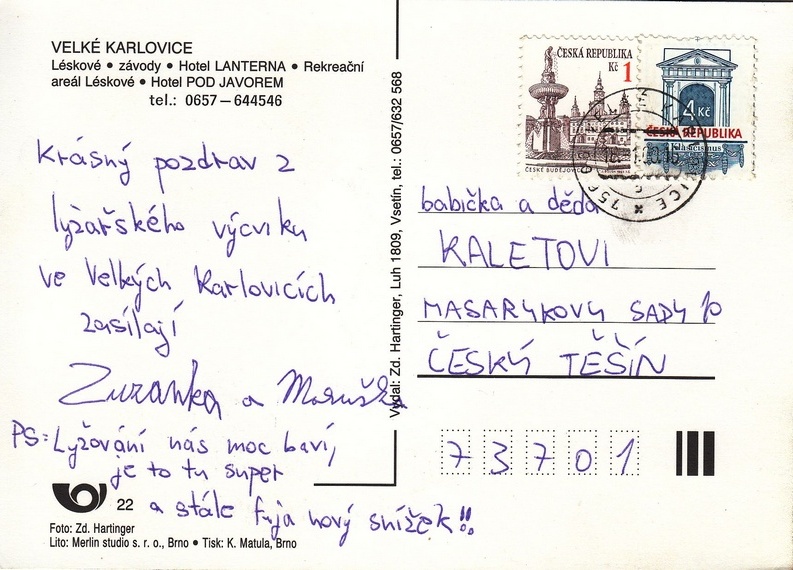 VELKÉ KARLOVICE
Léskové • závody • Hotel LANTERNA • Rekreační
areál Léskové • Hotel POD JAVOREM
tel.: 0657–644546
Krásný pozdrav z
lyžařského výcviku
ve Velkých Karlovicích
zasílají
Zuzanka a Maruška
PS: Lyžování nás moc baví,
je to tu super
a stále fujá nový snížek!!
22
Foto: Zd. Hartinger
Lito: Merlin studio s. r. o., Brno • Tisk: K. Matula, Brno
Vydal: Zd. Hartinger, Luh 1809, Vsetín, tel.: 0657/632 568
ČESKÁ REPUBLIKA
Kč 1
ČESKÉ BUDĚJOVICE
4 Kč
ČESKÁ REPUBLIKA
Klasicismus
babička a děda
KALETOVI
MASARYKOVY SADY 10
ČESKÝ TĚŠÍN
73701